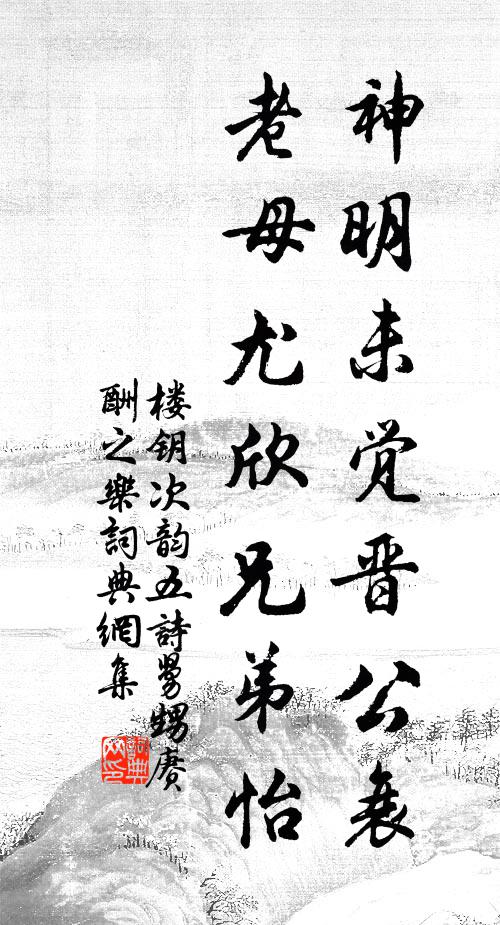 神明未觉晋公衰
老母尤欣兄弟怡
楼钥次韵五詩舅甥赓
酬之樂詞典網集